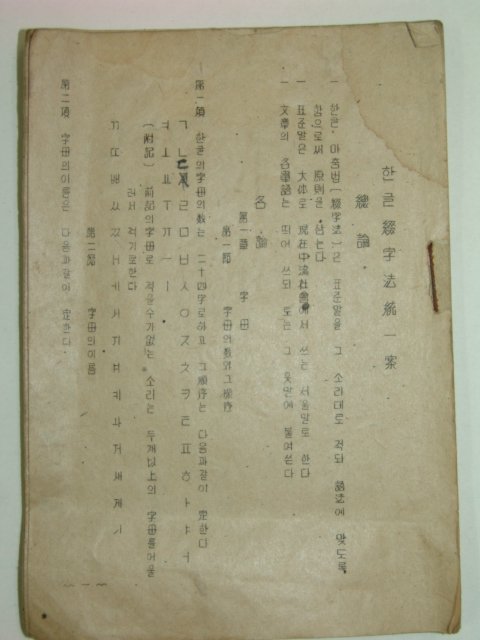 한글 綴字法統一案
總論
一 한글 마춤법(綴字法)은 표준말을 그 소리대로 적되 語法에 맞도록
함으로써 原則을 삼는다
一 표준말은 大体로 現在中流社會에서 쓰는 서울말로 한다
一 文章의 各單語는 띄어 쓰되 토는 그 웃말에 붙여쓴다
各論
第一章 字母
第一節 字母의數와그順序
第一項 한글의字母의數는 二十四字로하고 그順序는 다음과같이 定한다
ㄱ ㄴ ㄷ ㄹ ㅁ ㅂ ㅅ ㅇ ㅈ ㅊ ㅋ ㅌ ㅍ ㅎ ㅏ ㅑ ㅓ
ㅕ ㅗ ㅛ ㅜ ㅠ ㅡ ㅣ
(附記) 前記의字母로 적을수가없는 소리는 두개以上의 字母를어울
러서 적기로한다
ㄲ ㄸ ㅃ ㅆ ㅉ ㅐ ㅔ ㅚ ㅟ ㅒ ㅖ ㅘ ㅝ ㅙ ㅞ ㅢ
第二節 字母의이름
第二項 字母의이름은 다음과같이 定한다.
一